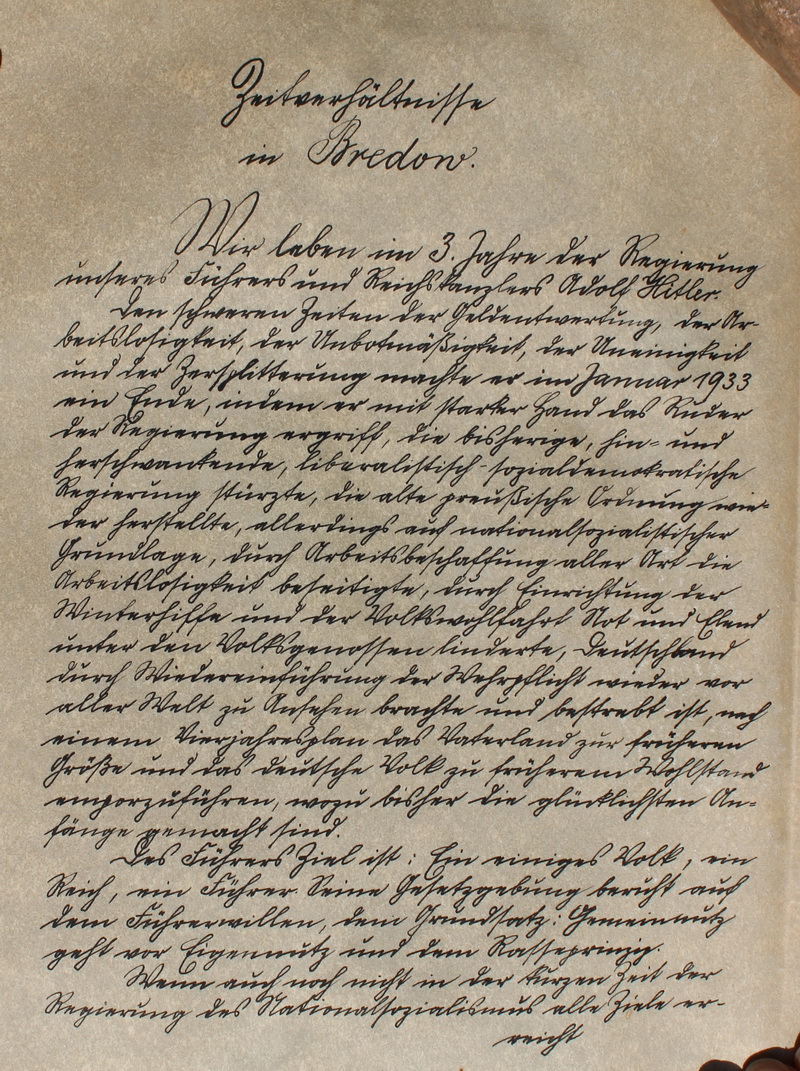 Zeitverhältnisse
in Bredow.
Wir leben im 3. Jahre der Regierung
unseres Führers und Reichskanzlers Adolf Hitler.
Den schweren Zeiten der Geldentwertung, der Ar-
beitslosigkeit, der Unbotmäßigkeit, der Uneinigkeit
und der Zersplitterung machte er im Januar 1933
ein Ende, indem er mit starker Hand das Ruder
der Regierung ergriff, die bisherige, hin- und
herschwankende, liberalistisch-sozialdemokratische
Regierung stürzte, die alte preußische Ordnung wie-
der herstellte, allerdings auf nationalsozialistischer
Grundlage, durch Arbeitsbeschaffung aller Art die
Arbeitslosigkeit beseitigte, durch Einrichtung der
Winterhilfe und der Volkswohlfahrt Not und Elend
unter den Volksgenossen linderte, Deutschland
durch Wiedereinführung der Wehrpflicht wieder vor
aller Welt zu Ansehen brachte und bestrebt ist, nach
einem Vierjahresplan das Vaterland zur früheren
Größe und das deutsche Volk zu früherem Wohlstand
emporzuführen, wozu bisher die glücklichsten An-
fänge gemacht sind.
Des Führers Ziel ist: Ein einiges Volk, ein
Reich, ein Führer. Seine Gesetzgebung beruht auf
dem Führerwillen, dem Grundsatz: Gemeinnutz
geht vor Eigennutz und dem Rasseprinzip.
Wenn auch noch nicht in der kurzen Zeit der
Regierung des Nationalsozialismus alle Ziele er-
reicht